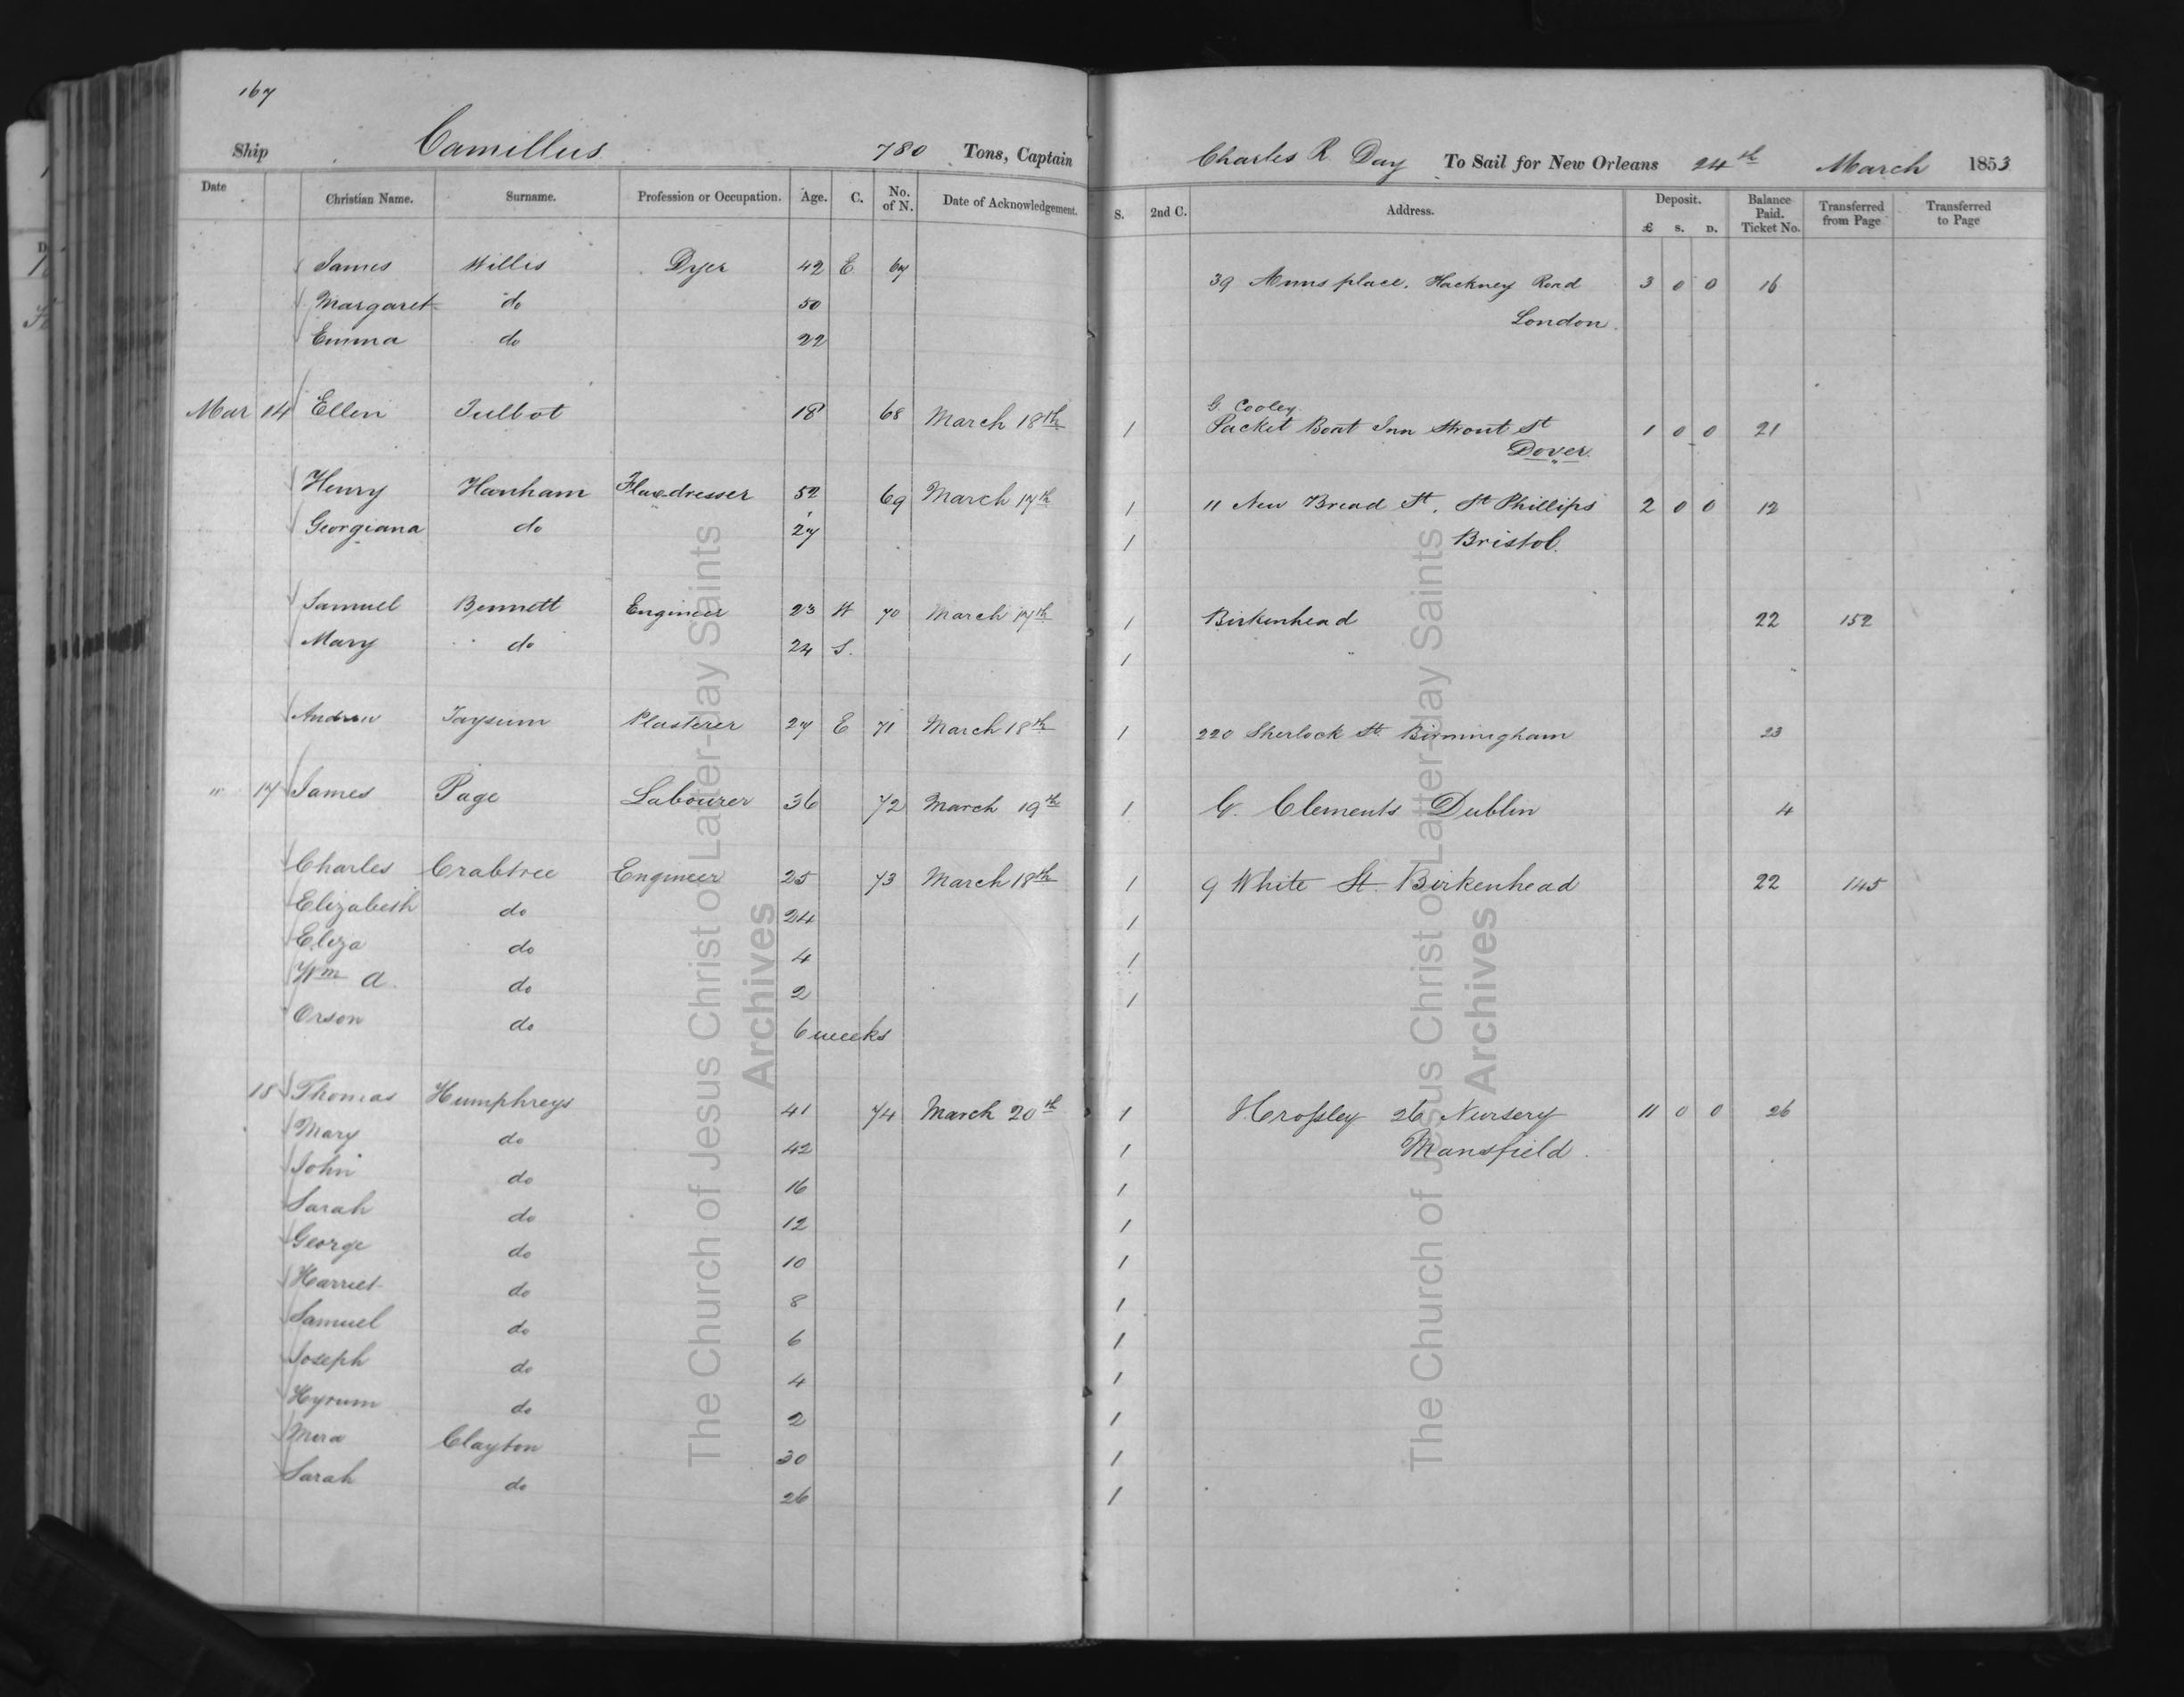 167
Ship Camillus 780 Tons, Captain Charles R Day To Sail for New Orleans 24th March 1853
Date Christian Name. Surname. Profession or Occupation. Age. C. No. of N. Date of Acknowledgement. S. 2nd C. Address. Deposit. £ S. D. Balance Paid. Ticket No. Transferred from Page Transferred to Page
James Willis Dyer 42 E 67 39 Anns place. Hackney Road 3 0 0 16
Margaret do 50 London.
Emma do 22
G Cooley
Mar 14 Ellen Tulbot 18 68 March 18th 1 Packet Boat Inn Strout St 1 0 0 21
Dover.
Henry Hanham Flaxdresser 52 69 March 17th 1 11 New Bread St. St Phillips 2 0 0 12
Georgiana do 27 1 Bristol.
Samuel Bennett Engineer 23 H 70 March 17th 1 Birkenhead 22 152
Mary do 24 S. 1
Andrew Taysum Plasterer 27 E 71 March 18th 1 220 Sherlock St. Birmingham 23
" 17 James Page Labourer 36 72 March 19th 1 G. Clements Dublin 4
Charles Crabtree Engineer 25 73 March 18th 1 9 White St. Birkenhead 22 145
Elizabeth do 24 1
Eliza do 4 1
Wm A. do 2 1
Orson do 6 weeks
18 Thomas Humphreys 41 74 March 20th 1 26 Nursery 11 0 0 26
Mary do 42 1 Mansfield.
John do 16 1
Sarah do 12 1
George do 10 1
Harriet do 8 1
Samuel do 6 1
Joseph do 4 1
Hyrum do 2 1
Mira Clayton 30 1
Sarah do 26 1
The Church of Jesus Christ of Latter-day Saints
Archives
The Church of Jesus Christ of Latter-day Saints
Archives